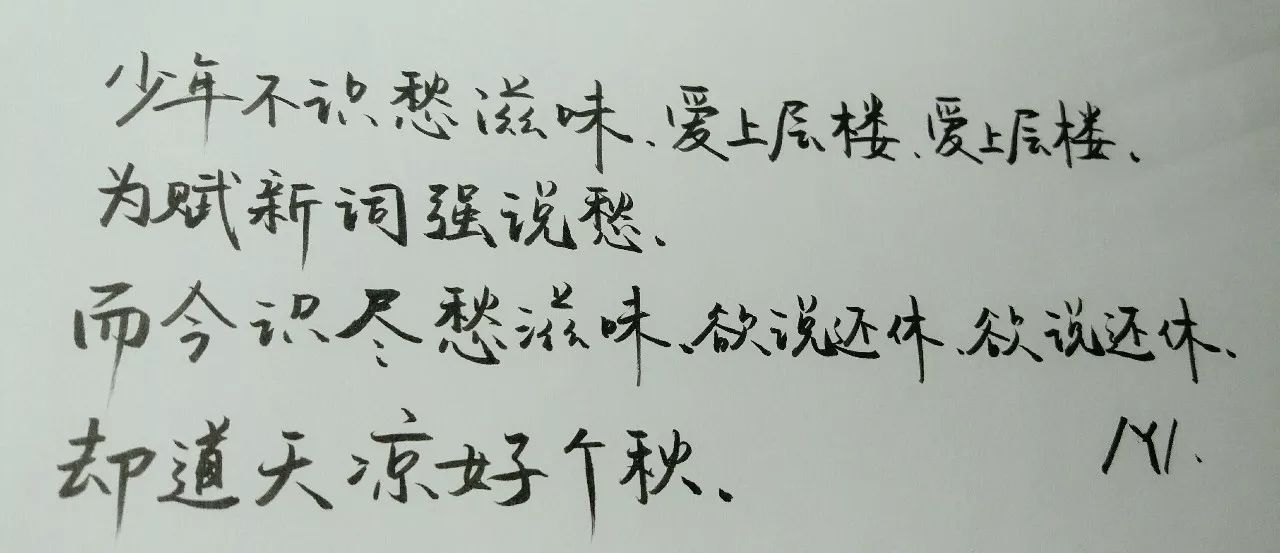 少年不识愁滋味、爱上层楼、爱上层楼、
为赋新词强说愁、
而今识尽愁滋味、欲说还休、欲说还休、
却道天凉好个秋、